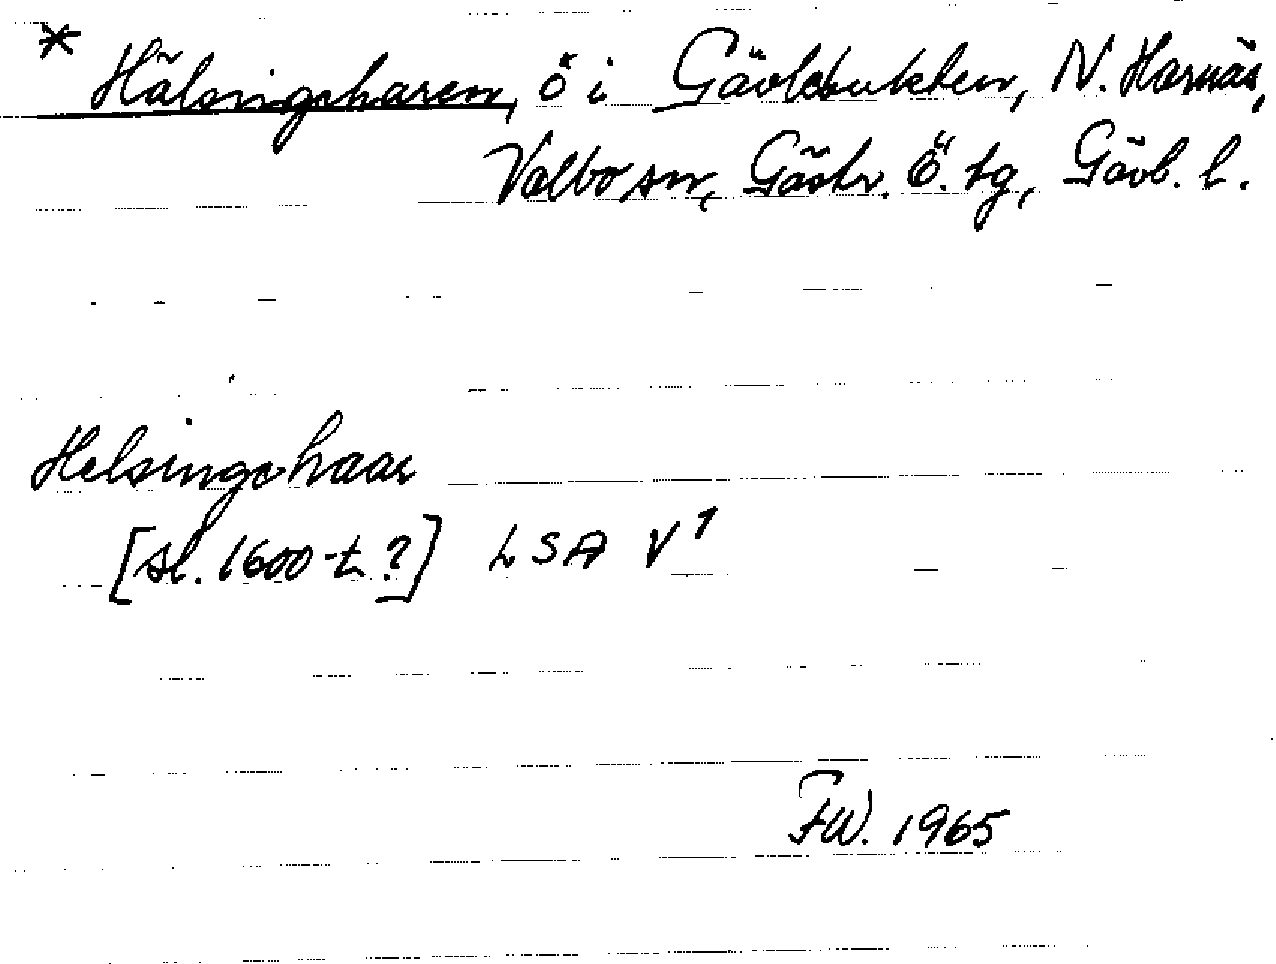 * Hälsingsharen, ö i Gävlebukten, N. Harnäs,
Valbo sn, Gästr. Ö. tg, Gävb. l.
Helsingshaar
[sl. 1600-t ?] LSA V¹
FW. 1965